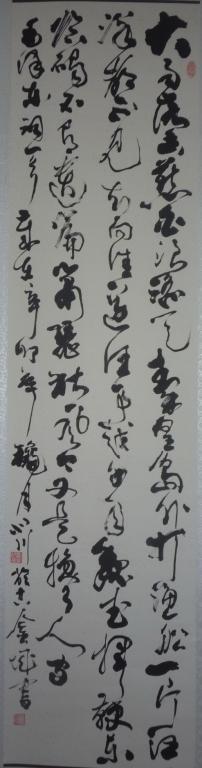 大雨落幽燕白浪滔天秦皇岛外打渔船一片汪
洋都不见知向谁边往事越千年魏武挥鞭东
临碣石有遗篇萧瑟秋风今又是换了人间
毛泽东词一首 岁在辛卯年 月 川 於 书